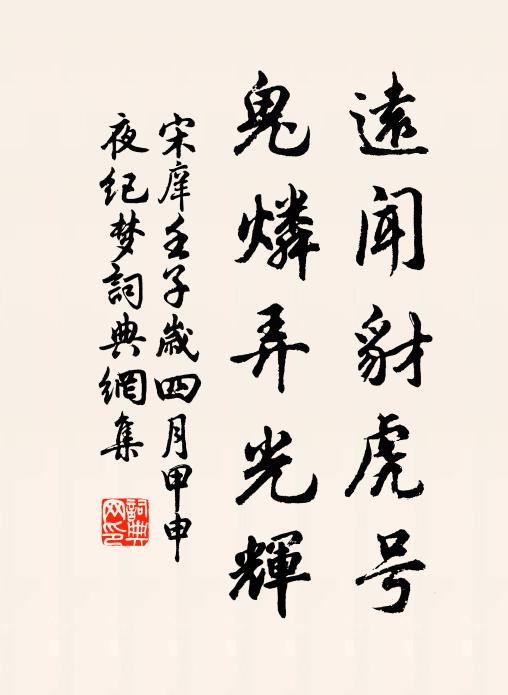 遠聞豺虎号
鬼燐弄光輝
宋庠壬子歳四月甲申
夜纪梦詞典網集
詞典网印